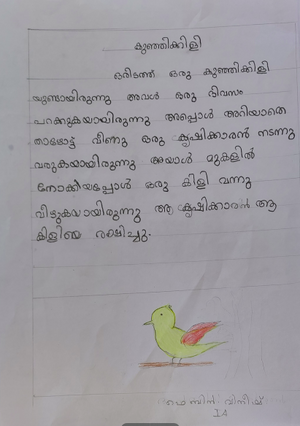 കുഞ്ഞിക്കിളി
ഒരിടത്ത് ഒരു കുഞ്ഞിക്കിളി
യുണ്ടായിരുന്നു അവൾ ഒരു ദിവസം
പറക്കുകയായിരുന്നു അപ്പൊൾ അറിയാതെ
താഴോട്ട് വീണു ഒരു കൃഷിക്കാരൻ നടന്നു
വരുകയായിരുന്നു അയാൾ മുകളിൽ
നോക്കിയപ്പോൾ ഒരു കിളി വന്നു
വിഴുകയായിരുന്നു ആ കൃഷിക്കാരൻ ആ
കിളിയെ രക്ഷിച്ചു.
വിനീഷ്
1A